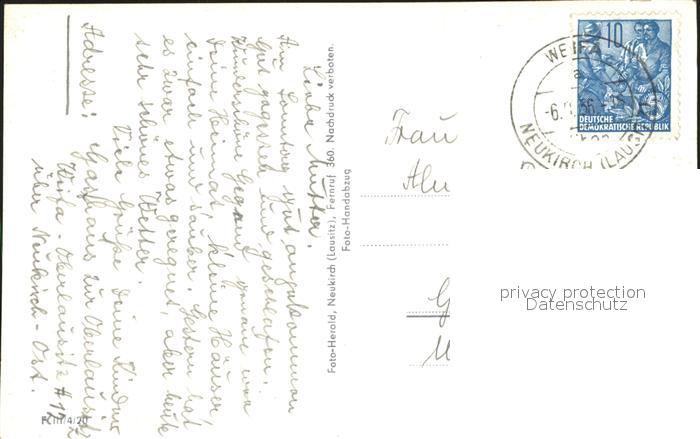 Liebe Mutter.
Am Sonntag gut angekommen
Gut gegessen und geschlafen.
Wunderschöne Gegend, genau wie
deine Heimat, kleine Häuser
einfach und sauber. Gestern hat
es zwar etwas geregnet, aber heute
sehr schönes Wetter.
Viele Grüße deine Kinder
Adresse: Gasthaus zur Oberlausitz
Weifa - Oberlausitz
über Neukirch-Ost.
Foto-Herold, Neukirch (Lausitz), Fernruf 360. Nachdruck verboten.
Foto-Handabzug
Frau
G
M
WEIFA
NEUKIRCH (LAUSITZ)
10
DEUTSCHE
DEMOKRATISCHE REPUBLIK
privacy protection
Datenschutz